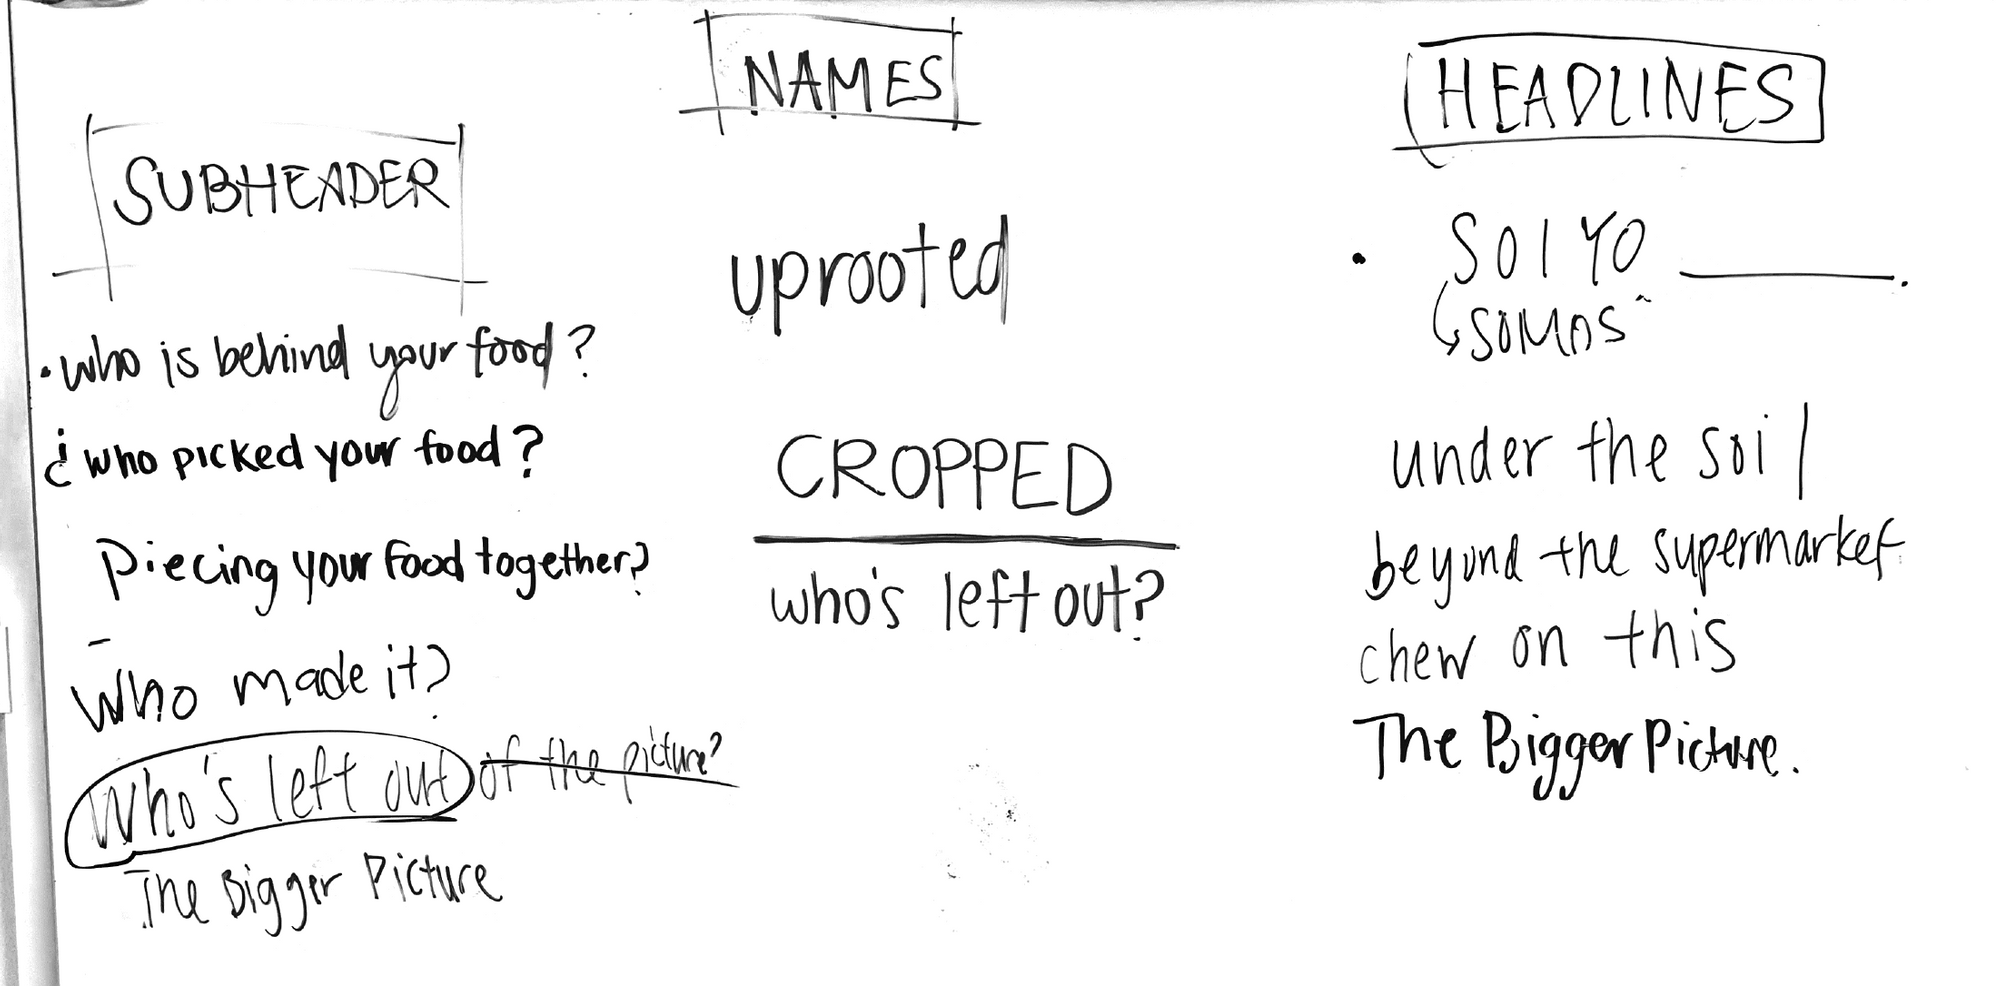 NAMES
HEADLINES
SUBHEADER
• who is behind your food?
¿ who picked your food?
Piecing your food together?
who made it?
Who's left out of the picture?
The Bigger Picture
uprooted
CROPPED
who's left out?
• SOI YO ________.
SOMOS
under the soil
beyond the supermarket
chew on this
The Bigger Picture.